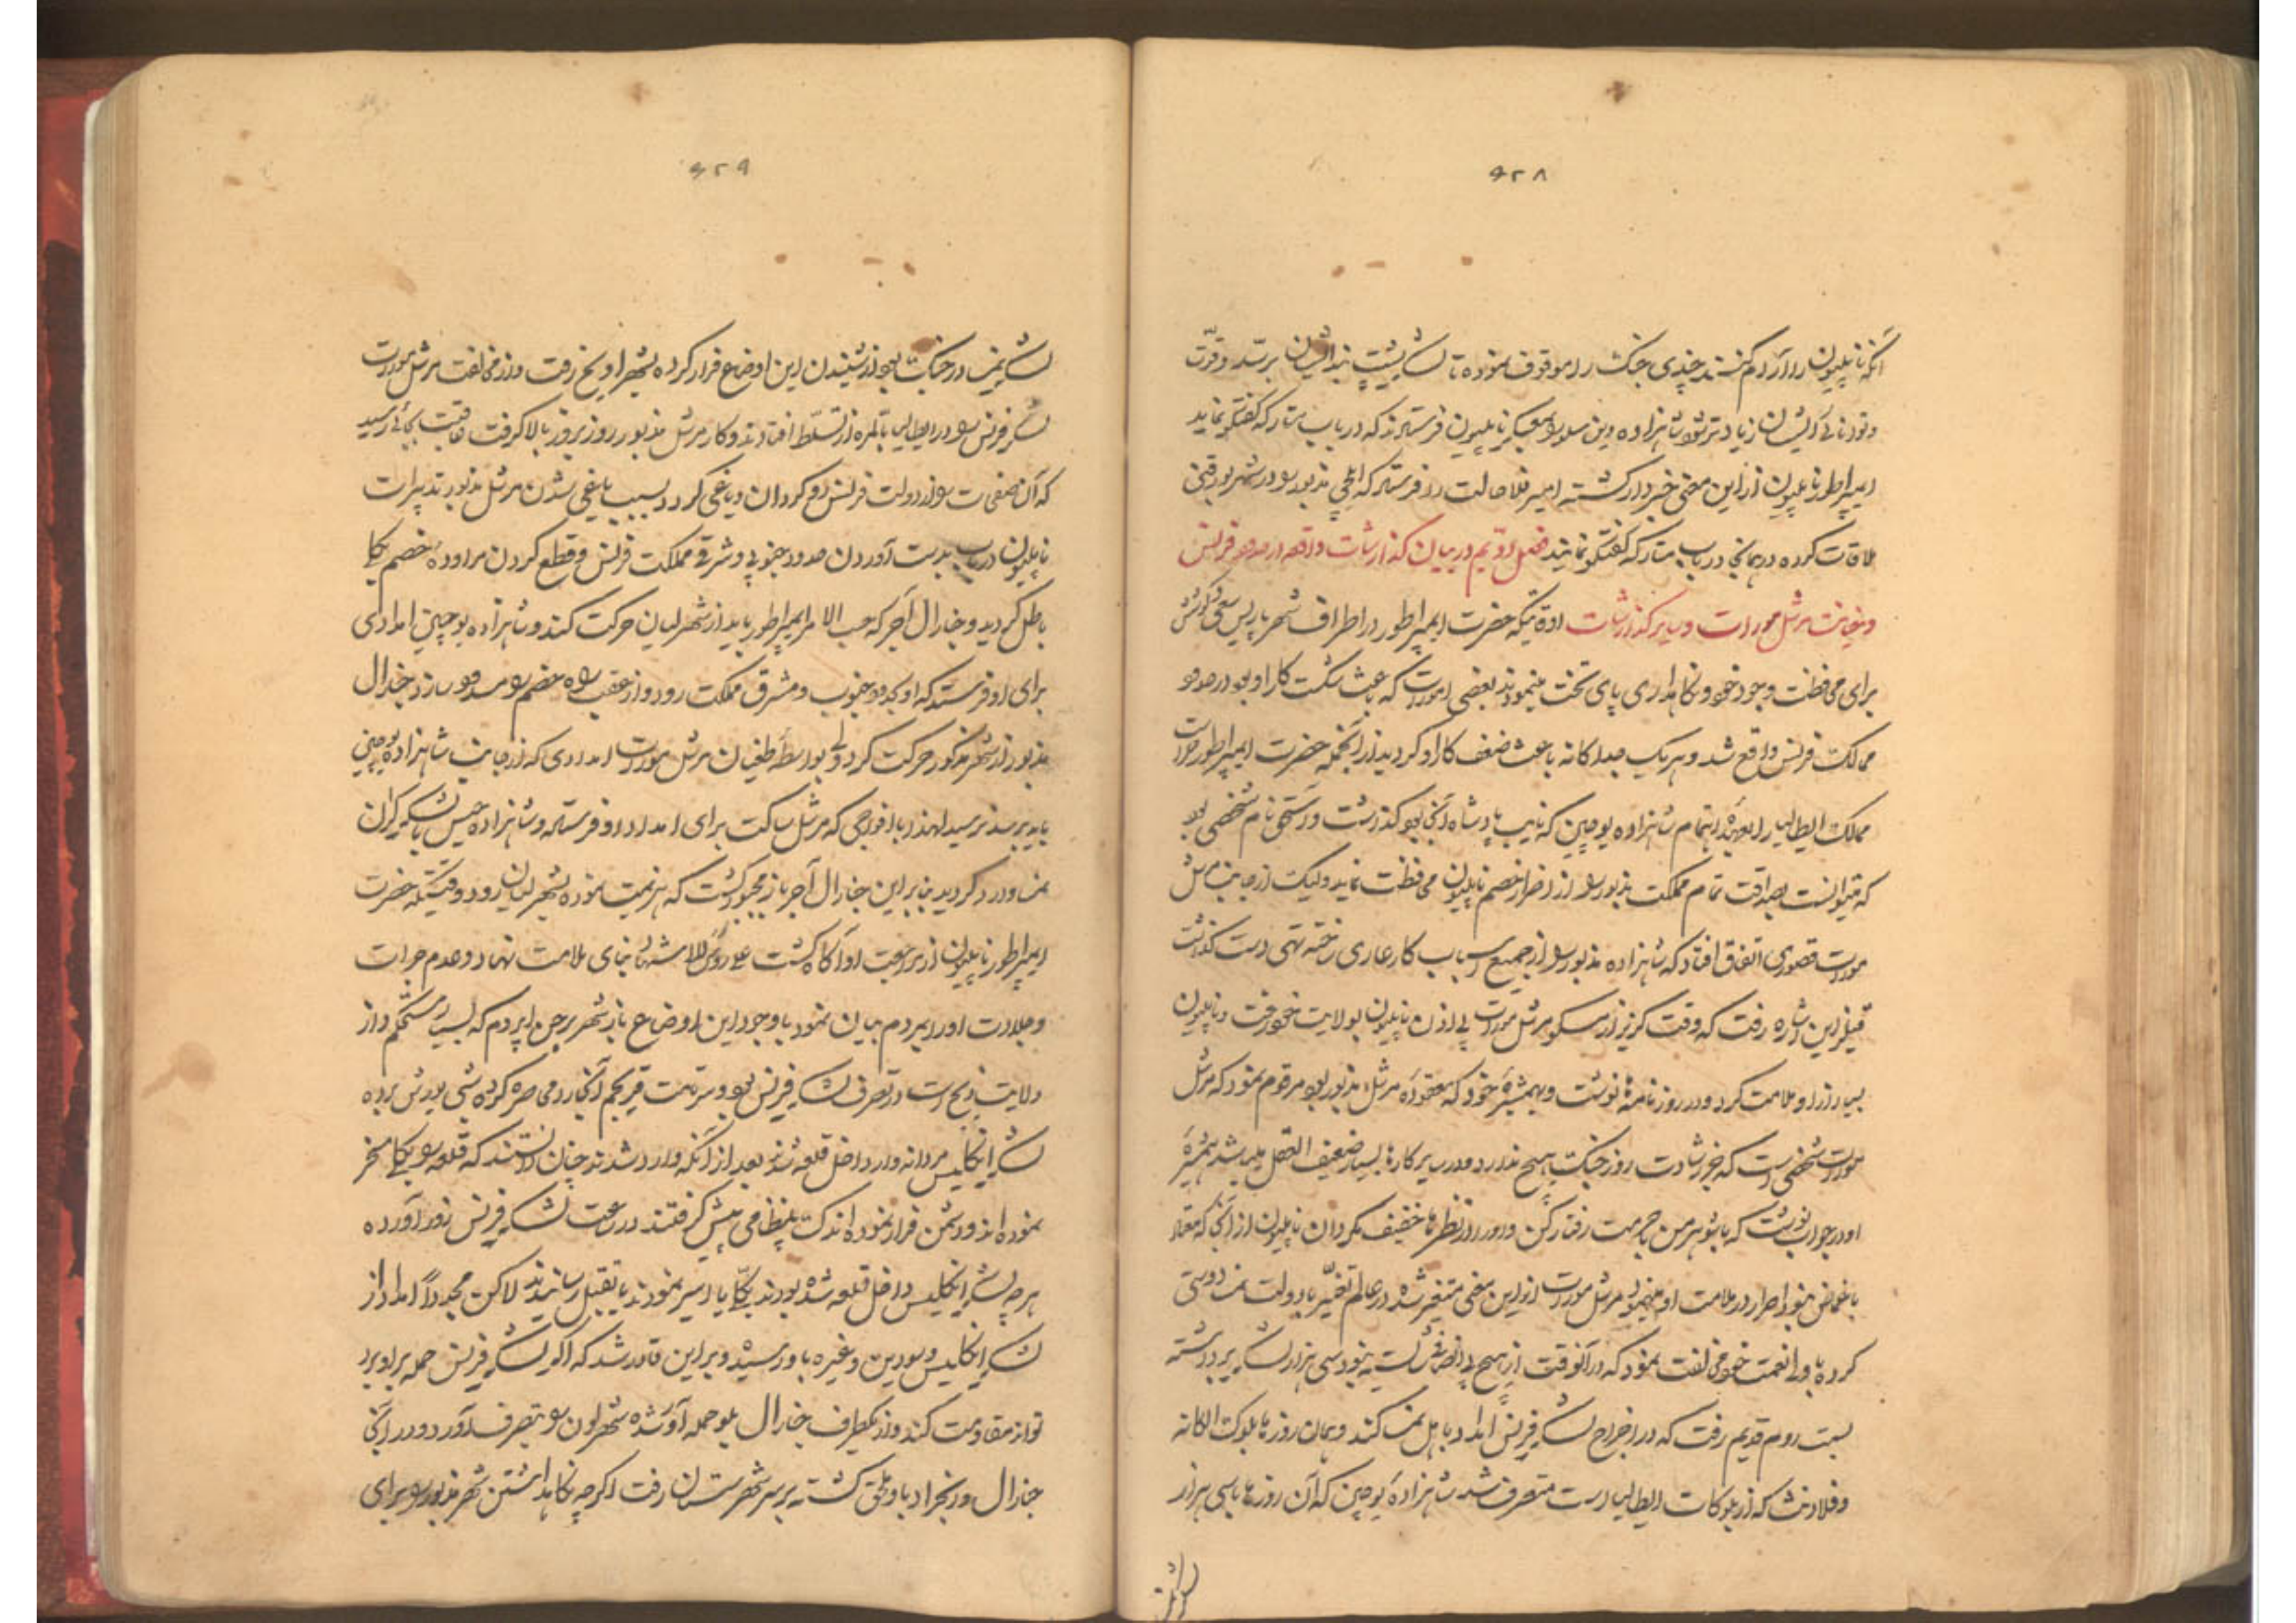 ۶۲۸
آنکه ناپلیون را آرام کنند چندی جنک را موقوف نموده تا لشکر بیست بندایشان برسد و قوّت
و توانائی ایشان زیادتر شود شاهزاده وین سلو بمعسکر ناپلیون فرستادند که در باب متارکه گفتگو نماید
ایمپراطور ناپلیون از این معنی خبردار کشته امیر فلاحالت را فرستاد که ایلچی مذبور را در شهر
ملاقات کرده در همانجا در باب متارکه گفتگو نمایند فصل دویم در بیان گذارشات واقعه در حدود فرانس
و خیانت مرشل مورات و سایر گذارشات در وقتیکه حضرت ایمپراطور در اطراف شهر پاریس سعی و کوشش
برای محافظت وجود خود و نکاهداری پای تخت مینمودند بعضی امورات که باعث شکست کار او بود در حدود
ممالک فرانس واقع شد و هر یک جداکانه باعث ضعف کار او کردید از آنجمله حضرت ایمپراطور حراست
ممالک ایطالیا را بعهده اهتمام شاهزاده یوجین که نایب پادشاه آنجا بود گذاشت و راستی نام شخصی بود
که میتوانست بصداقت تمام مملکت مذبور را از اضرار خصم ناپلیون محافظت نماید ولیکن از جانب مرشل
مورات قصوری اتفاق افتاد که شاهزاده مذبور را از جمیع اسباب کار عاری ساخته تهی دست گذاشت
قبل از این اشاره رفت که وقت کریز از مسکو مرشل مورات بی اذن ناپلیون بولایت خود رفت و ناپلیون
بسیار از او ملامت کرد و در روزنامه نوشت و بهمشیره خود که معقوده مرشل مذبور بود مرقوم نمود که مرشل
مورات شخصی است که بجز رشادت روز جنک هیچ ندارد و در سایر کارها بسیار ضعیف العقل میباشد همشیره
او در جواب نوشت که با شوهر من بحرمت رفتار کن و او را از نظرها خفیف مکردان ناپلیون از آنجا که
باغماض نبود اصرار در ملامت او مینمود مرشل مورات از این معنی متغیر شده در عالم تغیّر با دولت نمسا دوستی
کرده با ولی نعمت خود مخالفت نمود که در آنوقت از هیچ بی انصافی شایسته نبود سی هزار لشکر برداشته
بسمت روم قدیم رفت که در اخراج لشکر فرانس امداد باهل نمسا کند و همان روزها بلوکات
که از بلوکات ایطالیا است متصرف شد شاهزاده یوجین که آن روزها با سی هزار
۶۲۹
لشکر نمسا در جنک بود از شنیدن این اوضاع فرار کرده بشهر اویخ رفت و از مخالفت مرشل مورات
لشکر فرانس در ایطالیا بالمره از تسلّط افتادند و کار مرشل مذبور روز بروز بالا کرفت عاقبت بجائی رسید
که آن صفحات را از دولت فرانس رو کردان و یاغی کرد بسبب یاغی شدن مرشل مذبور تدبیرات
ناپلیون در باب بدست آوردن حدود جنوبی و شرقی مملکت فرانس و قطع کردن مراوده خصم بکلی
باطل کردید و جنرال آجر که حسب الامر ایمپراطور باید از شهر لیان حرکت کند و شاهزاده یوجین امدادی
برای او فرستد که او بحدود جنوب و مشرق مملکت رود و از عقب راه خصم را مسدود سازد جنرال
مذبور از شهر مذکور حرکت کرد ولی بواسطه طغیان مرشل مورات امدادی که از جانب شاهزاده یوجین
باید برسد نرسید لهذا با افواجی که مرشل ساکت برای امداد او فرستاد و شاهزاده حیس با لشکر کران
نمسا وارد کردید بنابراین جنرال آجر باز مجبور کشت که هزیمت نموده بشهر لیان رود وقتیکه حضرت
ایمپراطور ناپلیون از مراجعت او آکاه کشت علی رؤس الاشهاد بنای ملامت نهاد و عدم جرات
و جلادت او را بمردم بیان نمود با وجود این اوضاع باز شهر برجن اپ زدم که بسیار مستحکم و از
ولایت ولنج است در تصرف لشکر فرانس بود و سر تامس قریهم آنجا را محاصره کرده شبی یورش برده
لشکر انکلیس مردانه وار داخل قلعه شدند بعد از آنکه وارد شدند چنان دانستند که قلعه را بکلی مسخر
نموده اند و دشمن فرار نموده اندک بینظامی پیش کرفتند در ساعت لشکر فرانس زور آورده
هر چه لشکر انکلیس داخل قلعه شده بودند بکلّی یا اسیر نمودند یا بقتل رسانیدند لاکن مجدداً امداد از
لشکر انکلیس و سودین و غیره باو رسیده و بر این قادر شد که اکر لشکر فرانس حمله بر او برد
تواند مقاومت کند و از یکطرف جنرال بلو حمله آور شده شهر لون را بتصرف آورد و در آنجا
جنرال ونزنجراد باو ملحق کشته بر سر شهر ستسان رفت اکرچه نکاهداشتن شهر مذبور برای